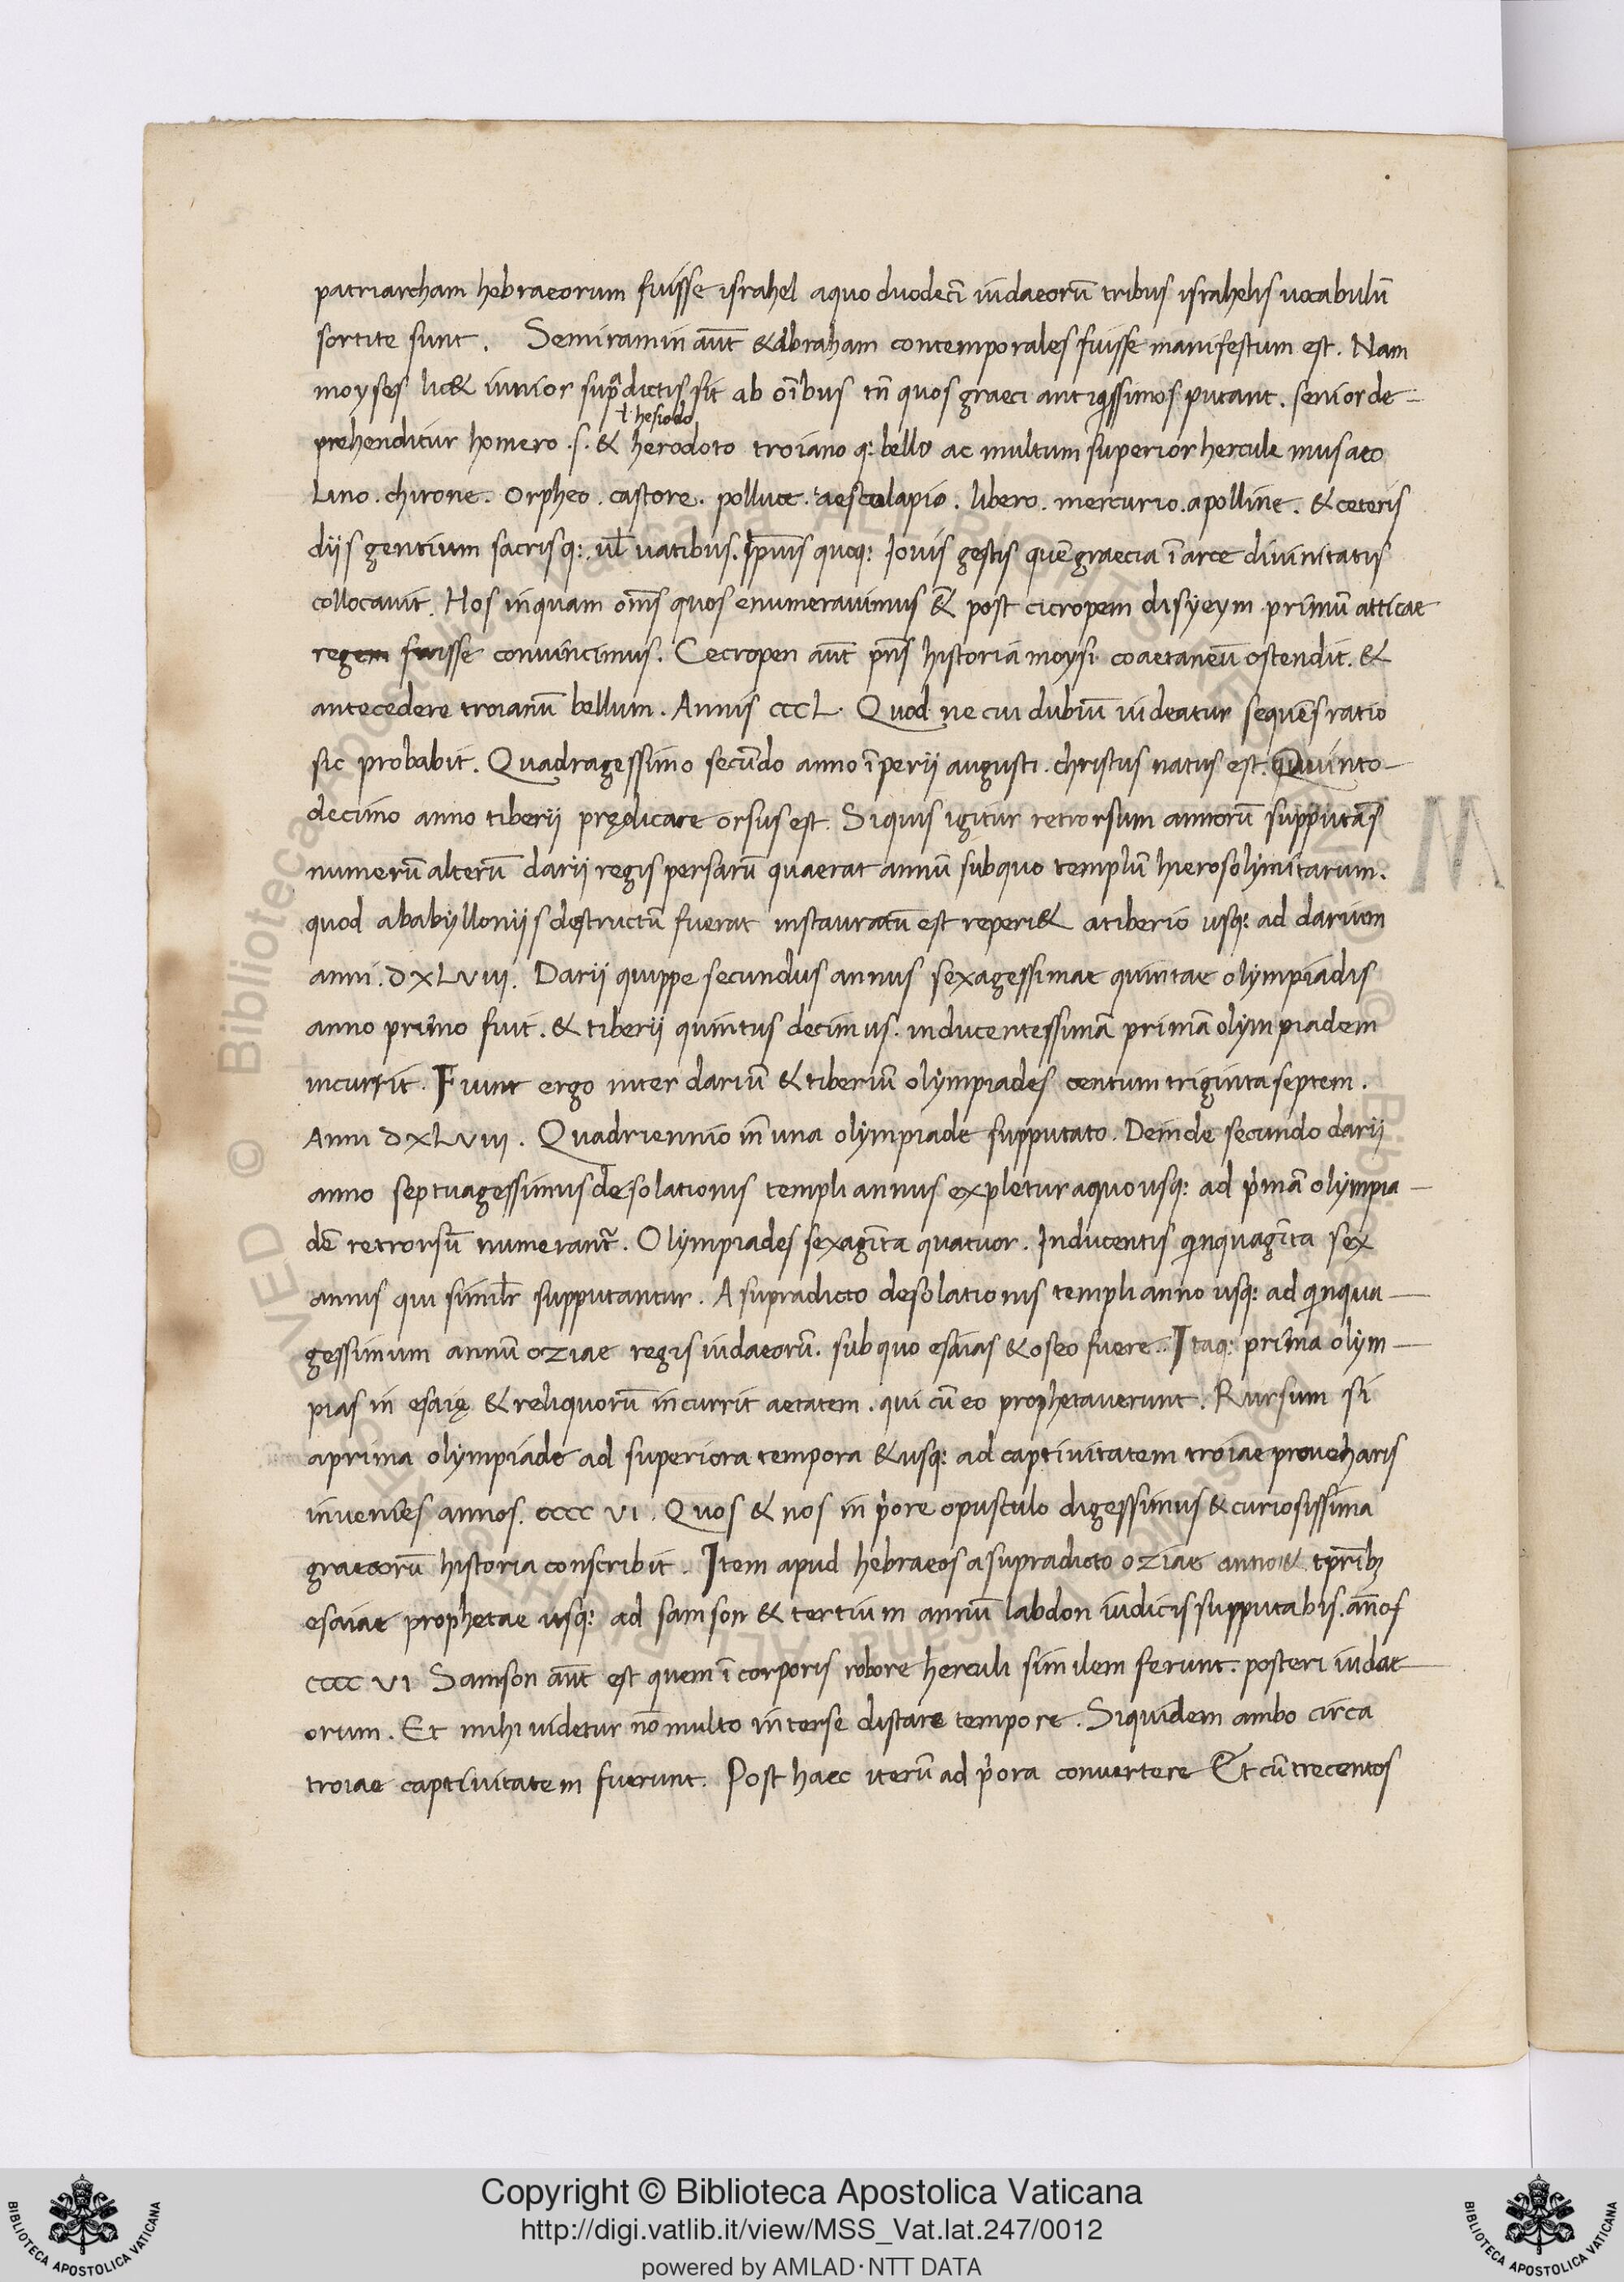 patriarcham hebraeorum fuisse israhel aquo duodecĩ iudaeorũ tribus israhelis uocabulũ
sortite sunt. Semiramin aũt & abraham contemporales fuisse manifestum est. Nam
moyses lic& iunior sup̃dictis sit ab oĩbus tñ quos graeci antiqissimos putant. senior de-
ƚ hesiodo
prehenditur homero .s. & herodoto troiano q: bello ac multum superior hercule musaeo
Lino. chirone. orpheo. castore. polluce. aesculapio. libero. mercurio. apolline. & ceteris
diis gentium sacrisq: ul̃ uatibus. Ipius quoq: Iouis gestis quẽ graecia ĩ arce diuinitatis
collocauit. Hos inquam oms̃ quos enumerauimus & post cicropem disyeym primũ atticae
regem fuisse conuincimus. Cecropen aũt pñs historia moysi coaetaneũ ostendit. &
antecedere troianũ bellum. Annis cccL. Quod ne cui dubiũ uideatur sequẽs ratio
sic probabit. Quadragessimo secũdo anno ĩperii augusti. christus natus est. Quinto-
decimo anno tiberii prędicare orsus est. Siquis igitur retrorsum annorũ supputãs
numerũ alterũ darii regis persarũ quaerat annũ sub quo templũ hierosolymitarum.
quod ababylloniis destructũ fuerat instauratũ est reperi& atiberio usq: ad darium
anni. DXLVIII. Darii quippe secundus annus sexagessimae quintae olympiadis
anno primo fuit. & tiberii quintus decimus. inducentessimã primã olympiadem
incurrit. Fiunt ergo inter dariũ & tiberiũ olympiades centum triginta septem.
Anni DXLVIII. Quadriennio in una olympiade supputato. Deinde secundo darii
anno septuagessimus desolationis templi annus expletur aquo usq: ad p̃mã olympia-
dẽ retrorsũ numerant̃. Olympiades sexagĩta quatuor. Inducentis qinquagĩta sex
annis qui simil̃r supputantur. A supradicto desolationis templi anno usq: ad qinqua-
gessimum annũ oziae regis iudaeorũ. sub quo esaias & oseo fuere.. Itaq: prima olym-
pias in esaię & reliquorũ incurrit aetatem. qui cũ eo prophetauerunt. Rursum si
aprima olympiade ad superiora tempora & usq: ad captiuitatem troiae proueharis
inuenies annos. cccc VI. Quos & nos in p̃ore opusculo digessimus & curiosissima
graecorũ historia conscribit. Item apud hebraeos a supradicto oziae anno & tp̃rib;
esaiae prophetae usq: ad samson & tertium annũ labdon iudicis supputabis. ãnos
cccc VI Samson aũt est quem ĩ corporis robore herculi similem ferunt. posteri iudae-
orum. Et mihi uidetur nõ multo inter se distare tempore. Siquidem ambo circa
troiae captiuitatem fuerunt. Post haec iterũ ad p̃ora conuertere Et cũ trecentos
Copyright © Biblioteca Apostolica Vaticana
http://digi.vatlib.it/view/MSS_Vat.lat.247/0012
powered by AMLAD·NTT DATA
BIBLIOTECA APOSTOLICA VATICANA
BIBLIOTECA APOSTOLICA VATICANA